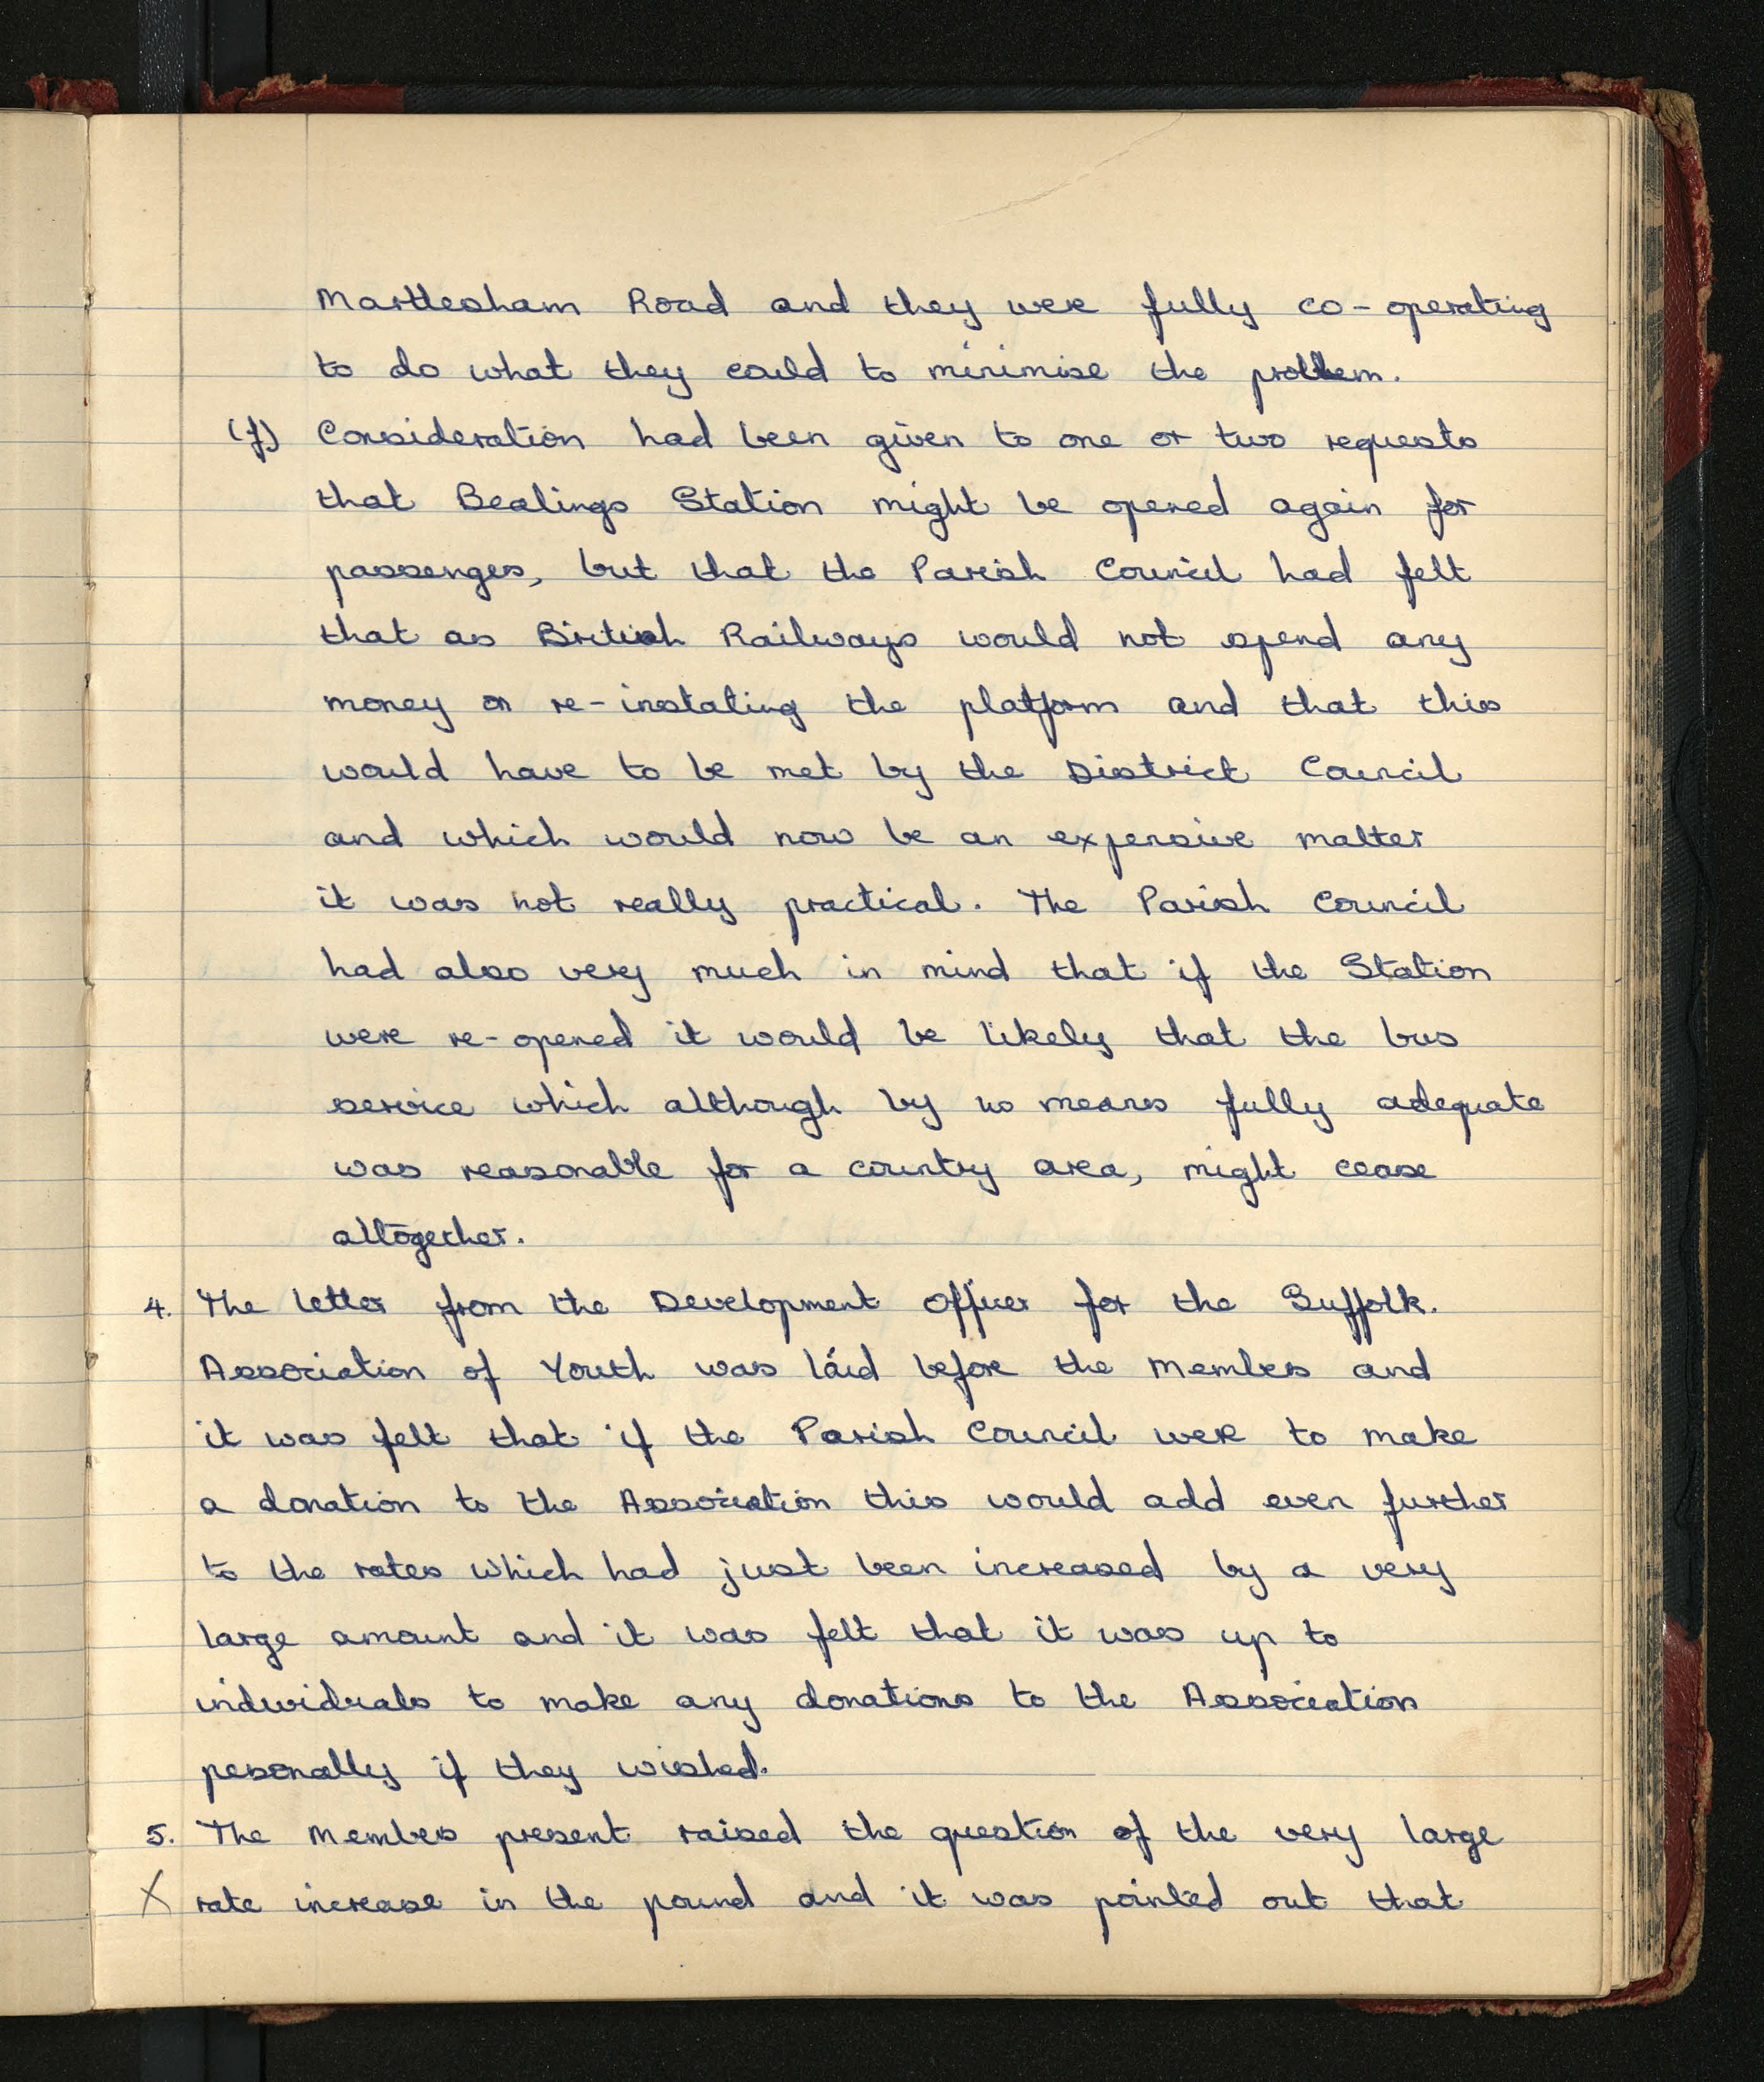 Martlesham Road and they were fully co-operating
to do what they could to minimise the problem.
(f) Consideration had been given to one or two requests
that Bealings Station might be opened again for
passengers, but that the Parish Council had felt
that as British Railways would not spend any
money on re-instating the platform and that this
would have to be met by the District Council
and which would now be an expensive matter
it was not really practical. The Parish Council
had also very much in mind that if the Station
were re-opened it would be likely that the bus
service which although by no means fully adequate
was reasonable for a country area, might cease
altogether.
4. The letter from the Development Officer for the Suffolk.
Association of Youth was laid before the Members and
it was felt that if the Parish Council were to make
a donation to the Association this would add even further
to the rates which had just been increased by a very
large amount and it was felt that it was up to
individuals to make any donations to the Association
personally if they wished.
5. The Members present raised the question of the very large
X rate increase in the pound and it was pointed out that